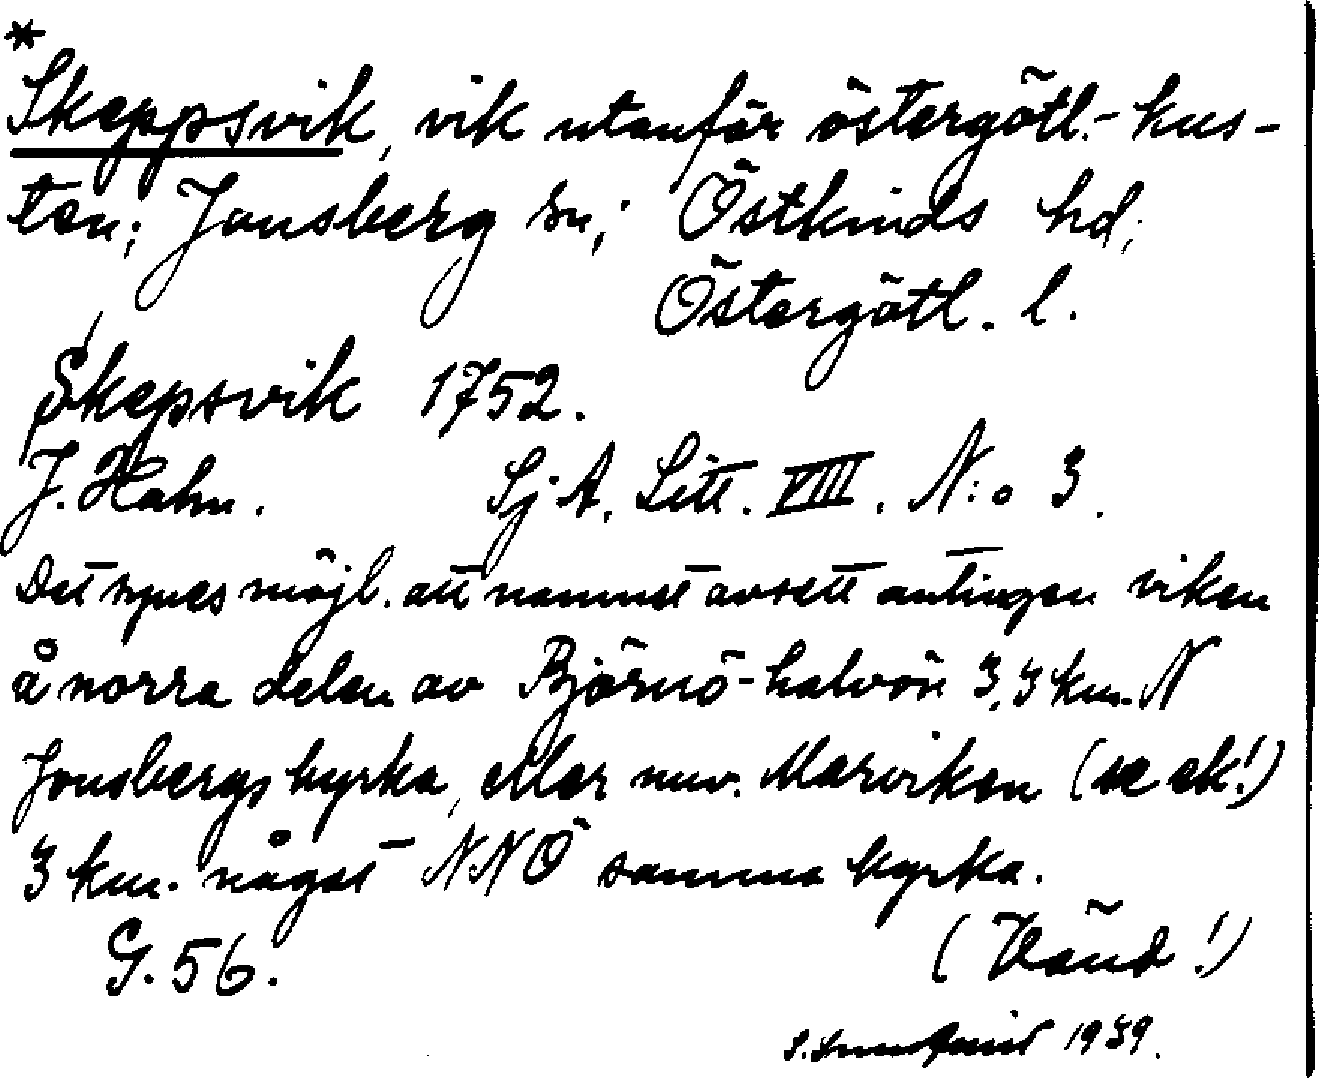 *
Skeppsvik, vik utanför östergötl.-kus-
ten; Jonsberg sn; Östkinds hd;
Östergötl. l.
Skepsvik 1752.
J. Hahn. Sj A. Litt. VIII. N:o 3.
Det synes möjl. att namnet avsett antingen viken
å norra delen av Björnö-halvön 3,3 km. N
Jonsbergs kyrka, eller nuv. Marviken (se ek!)
3 km. något NNÖ samma kyrka.
G. 56. (Vänd!)
1939.